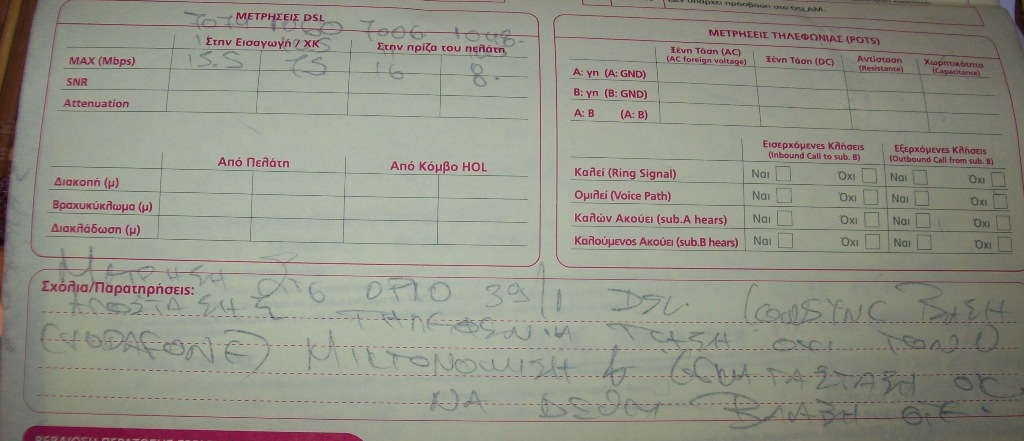 Δεν υπάρχει πρόσβαση στο DSLAM.
ΜΕΤΡΗΣΕΙΣ DSL
7006 1048.
Στην Εισαγωγή / ΧΚ Στην πρίζα του πελάτη
MAX (Mbps) 15.5 16 8.
SNR
Attenuation
Από Πελάτη Από Κόμβο HOL
Διακοπή (μ)
Βραχυκύκλωμα (μ)
Διακλάδωση (μ)
ΜΕΤΡΗΣΕΙΣ ΤΗΛΕΦΩΝΙΑΣ (POTS)
Ξένη Τάση (AC) Ξένη Τάση (DC) Αντίσταση Χωρητικότητα
(AC foreign voltage) (Resistance) (Capacitance)
Α: γη (A: GND)
Β: γη (B: GND)
Α: Β (A: B)
Εισερχόμενες Κλήσεις Εξερχόμενες Κλήσεις
(Inbound Call to sub. B) (Outbound Call from sub. B)
Καλεί (Ring Signal) Ναι Όχι Ναι Όχι
Ομιλεί (Voice Path) Ναι Όχι Ναι Όχι
Καλών Ακούει (sub.A hears) Ναι Όχι Ναι Όχι
Καλούμενος Ακούει (sub.B hears) Ναι Όχι Ναι Όχι
ΜΕΤΡΗΣΗ
Σχόλια/Παρατηρήσεις: ΣΤΟ ΟΡΙΟ 39/1 DSL ΒΑΣΗ
ΑΠΟΣΤΑΣΗΣ ΤΗΛΕΦΩΝΙΚΗ ΤΑΣΗ ΟΧΙ
(VODAFONE) ΜΙΚΤΟΝΟΜΗΣΗ ΟΚ.
ΝΑ ΔΟΘΕΙ ΒΛΑΒΗ Ο.Τ.Ε.